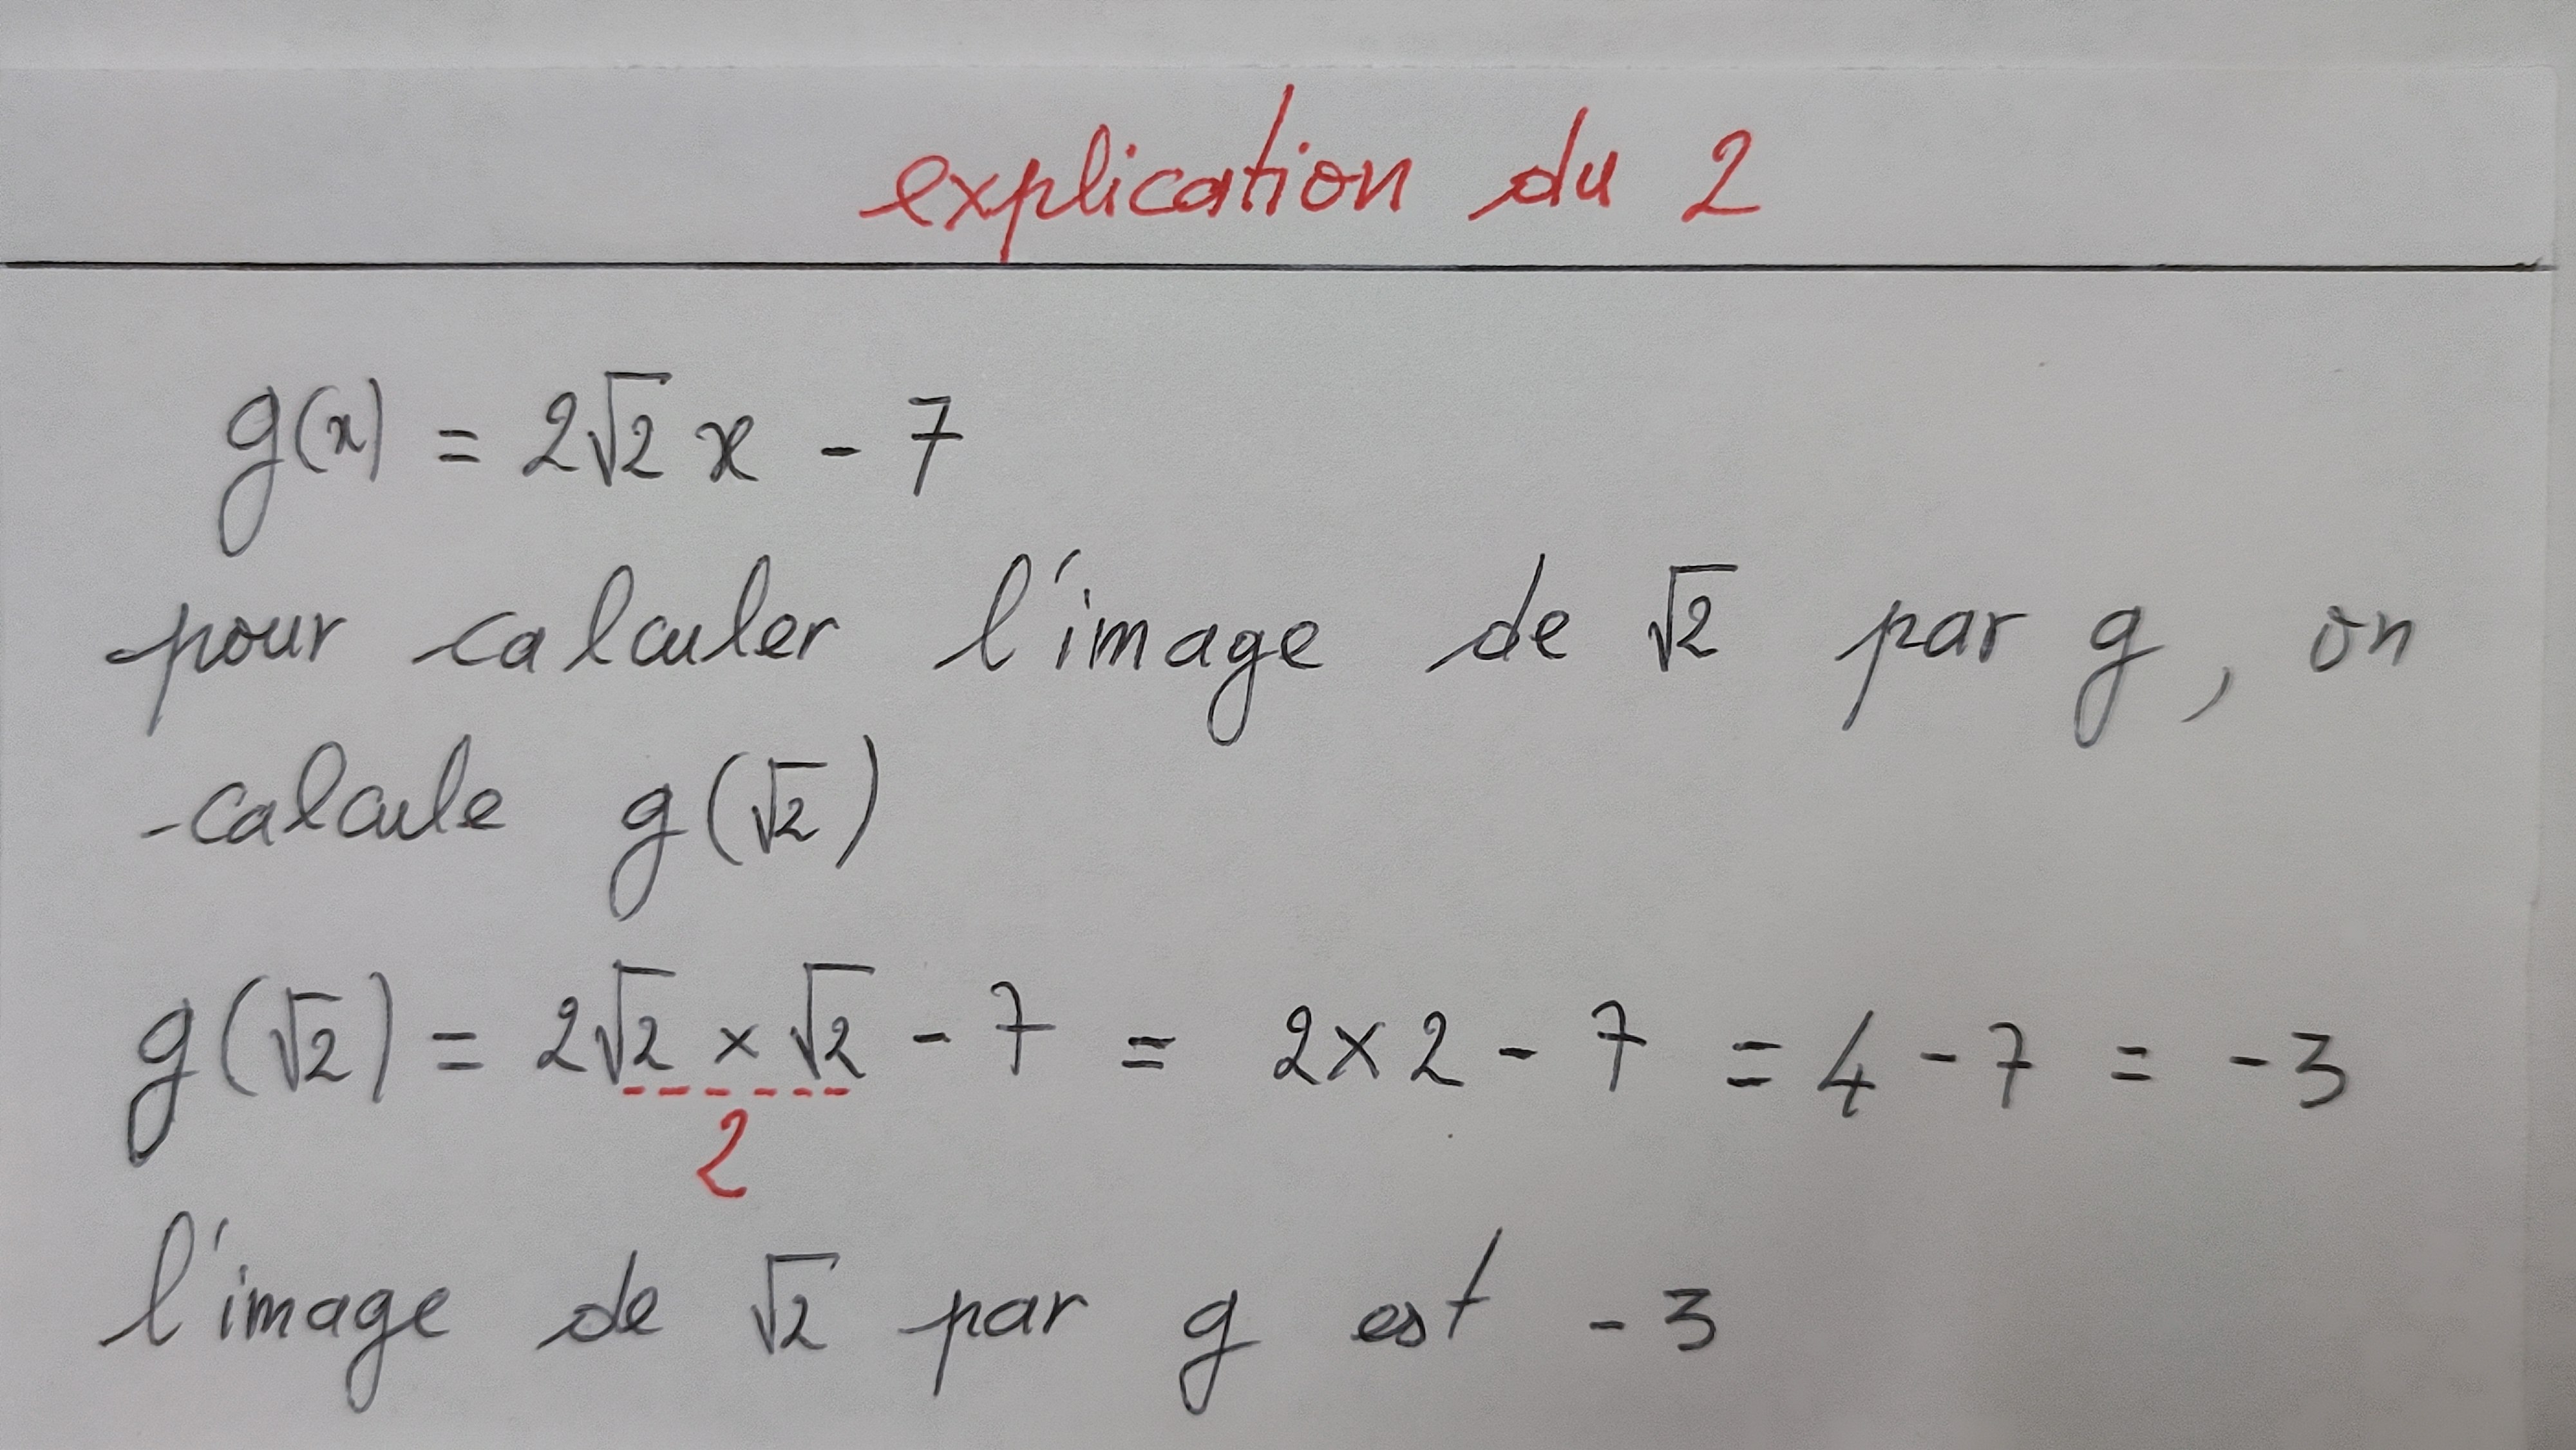 explication du 2
g(x) = 2√2 x - 7
pour calculer l'image de √2 par g, on
calcule g(√2)
g(√2) = 2√2 × √2 - 7 = 2×2 - 7 = 4 - 7 = -3
2
l'image de √2 par g est -3